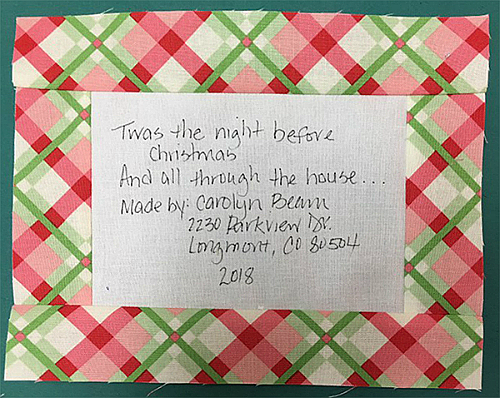 Twas the night before
Christmas
And all through the house...
Made by: Carolyn Beam
2230 Parkview Dr.
Longmont, CO 80504
2018